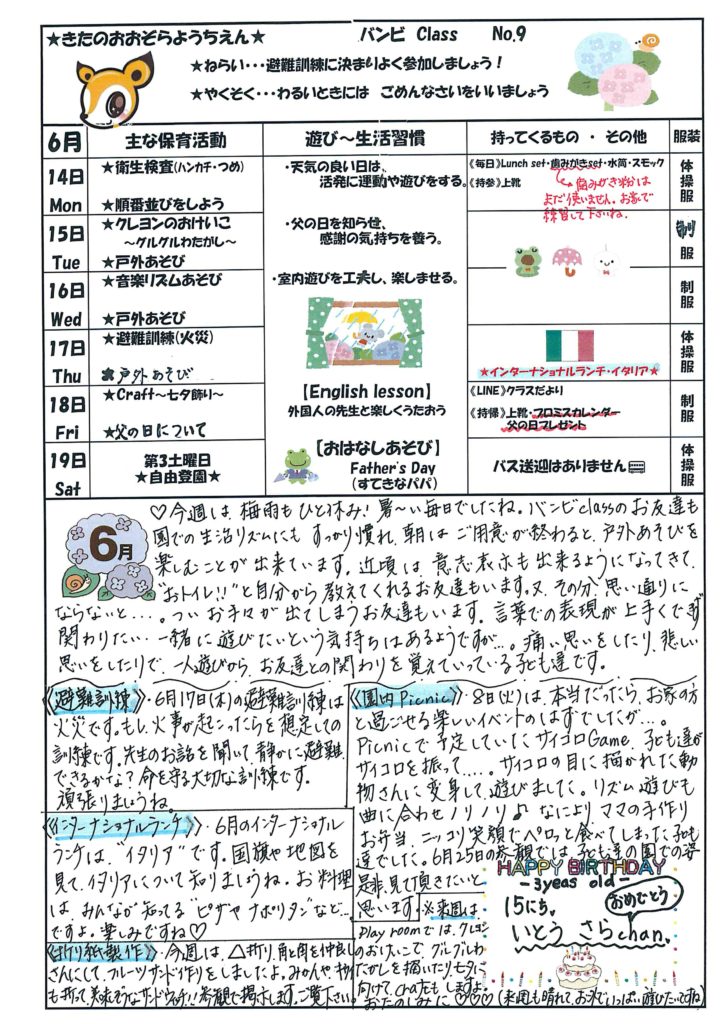 ★きたのおおぞらようちえん★ バンビ Class No.9
★ねらい・・・避難訓練に決まりよく参加しましょう！
★やくそく・・・わるいときには ごめんなさいをいいましょう
6月 主な保育活動 遊び～生活習慣 持ってくるもの ・ その他 服装
14日 Mon
★衛生検査(ハンカチ・つめ)
★順番並びをしよう
・天気の良い日は、
活発に運動や遊びをする。
《毎日》Lunch set・歯みがきset・水筒・スモック
《持参》上靴
歯みがき粉は
まだ使いません。お家で
練習して下さいね。
体操服
15日 Tue
★クレヨンのおけいこ
～グルグルわたがし～
★戸外あそび
・父の日を知らせ、
感謝の気持ちを養う。
服
16日 Wed
★音楽リズムあそび
★戸外あそび
・室内遊びを工夫し、楽しませる。
制服
17日 Thu
★避難訓練(火災)
★戸外あそび
★インターナショナルランチ・イタリア★
体操服
18日 Fri
★Craft～七夕飾り～
★父の日について
【English lesson】
外国人の先生と楽しくうたおう
《LINE》クラスだより
《持帰》上靴・プロミスカレンダー
父の日プレゼント
制服
19日 Sat
第3土曜日
★自由登園★
【おはなしあそび】
Father's Day
(すてきなパパ)
バス送迎はありません
体操服
6月
♡今週は、梅雨もひと休み！暑～い毎日でしたね。バンビclassのお友達も
園での生活リズムにもすっかり慣れ、朝はご用意が終わると、戸外あそびを
楽しむことが出来ています。近頃は、意志表示も出来るようになってきて、
"おトイレ!!"と自分から教えてくれるお友達もいます。又、その分、思い通りに
ならないと…。ついお手々が出てしまうお友達もいます。言葉での表現が上手くできず
関わりたい…一緒に遊びたいという気持ちはあるようですが…。痛い思いをしたり、悲しい
思いをしたりで、一人遊びから、お友達との関わりを覚えていっている子ども達です。
《避難訓練》・6月17日(木)の避難訓練は
火災です。もし、火事が起こったらを想定しての
訓練です。先生のお話を聞いて、静かに避難
できるかな？命を守る大切な訓練です。
頑張りましょうね。
《インターナショナルランチ》・6月のインターナショナル
ランチは、"イタリア"です。国旗や地図を
見て、イタリアについて知りましょうね。お料理
は、みんなが知ってる"ピザやナポリタン"など…
ですよ。楽しみですね♡
《折り紙製作》・今週は、△折り、角と角を仲良し
さんにして、フルーツサンド作りをしましたよ。みかんや
も折って、美味そうなサンドウィッチ!!参観で掲示します。ご覧下さい。
《園内Picnic》・8日(火)は、本当だったら、お家の方
と過ごせる楽しいイベントのはずでしたが…。
Picnicで予定していたサイコロGame、子ども達が
サイコロを振って……。サイコロの目に描かれた動
物さんに変身して遊びました。リズム遊びも
曲に合わせノリノリ♪なによりママの手作り
お弁当、ニッコリ笑顔でペロッと食べてしまった子ども
達でした。6月25日の参観では、子ども達の園での姿
是非、見て頂きたいと
思います。※来週は、
Play roomでは、クレヨン
のおけいこで、グルグルわ
たがしを描いたり、七夕に
向けて、Craftもしますよ。
おたのしみに♡♡♡(来週も晴れて、お外でいっぱい遊びたいですね)
HAPPY BIRTHDAY
-3yeas old-
15にち。
おめでとう
いとう さらchan.